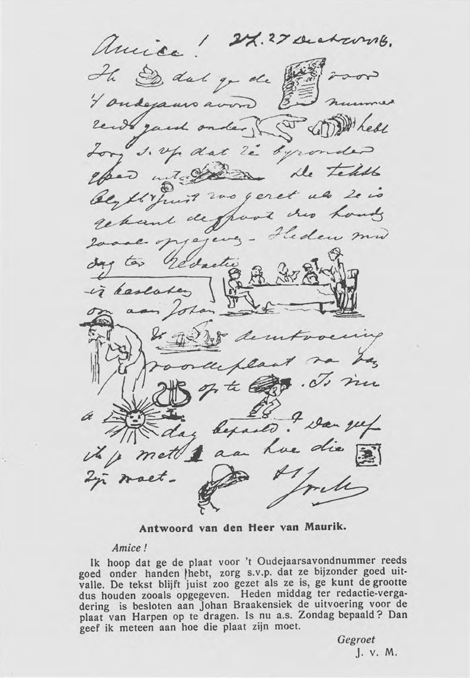 Amice!
27.
Ik dat ge de voor
't oudejaarsavond nummer
reeds goed onder hebt
zorg s.v.p. dat ze byzonder
goed uit De tekst
blyft juist zoo gezet als ze is
ge kunt de groot dus houd
zooals opgegeven - Heden mid
dag ter Redactie
is besloten
om aan Johan
de uitvoering
voor de plaat va
op te . Is nu
a dag bepaald? Dan geef
ik je met aan hoe die
zijn moet.
Antwoord van den Heer van Maurik.
Amice!
Ik hoop dat ge de plaat voor 't Oudejaarsavondnummer reeds
goed onder handen hebt, zorg s.v.p. dat ze bijzonder goed uit-
valle. De tekst blijft juist zoo gezet als ze is, ge kunt de grootte
dus houden zooals opgegeven. Heden middag ter redactie-verga-
dering is besloten aan Johan Braakensiek de uitvoering voor de
plaat van Harpen op te dragen. Is nu a.s. Zondag bepaald? Dan
geef ik meteen aan hoe die plaat zijn moet.
Gegroet
J. v. M.